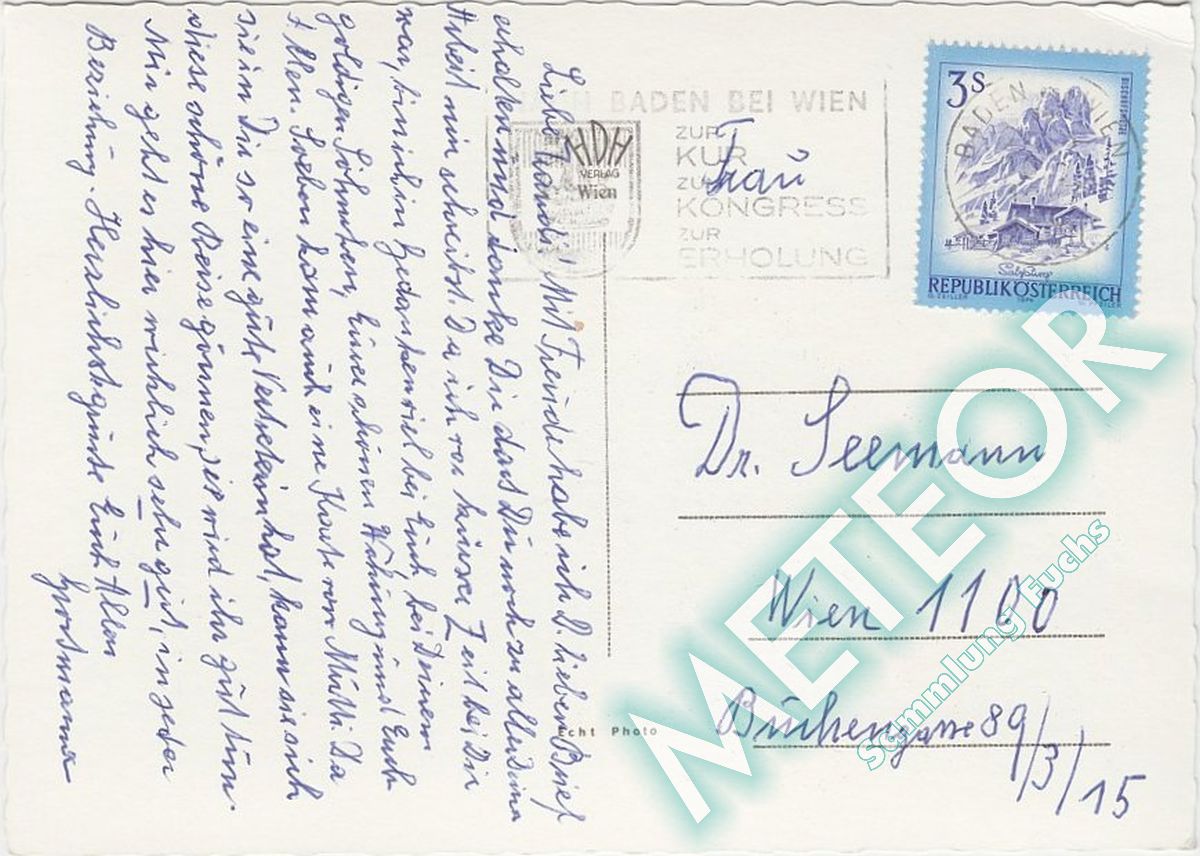 Liebe Handi! Mit Freude habe ich D. lieben Brief
erhalten und danke Dir dass Du noch zu all Deiner
Arbeit mir schreibst. Da ich vor kurzer Zeit bei Dir
war, bin ich in Gedanken viel bei Euch, bei Deinem
goldigen Söhnchen, Eurer schönen Wohnung und Euch
Allen. Soeben kam auch eine Karte von Mutti. Da
sie in Dir so eine gute Vertreterin hat, kann sie sich
diese schöne Reise gönnen, sie wird ihr gut tun.
Mir geht es hier wirklich sehr gut, in jeder
Beziehung. Herzlichst grüsst Euch Allen
BADEN BEI WIEN
ZUR
KUR
ZUM
KONGRESS
ZUR
ERHOLUNG
HDH
VERLAG
Wien
3S
BADEN WIEN
REPUBLIK ÖSTERREICH
Frau
Dr. Seemann
Wien 1100
Buchengasse 89/3/15
Echt Photo
METEOR
Sammlung Fuchs